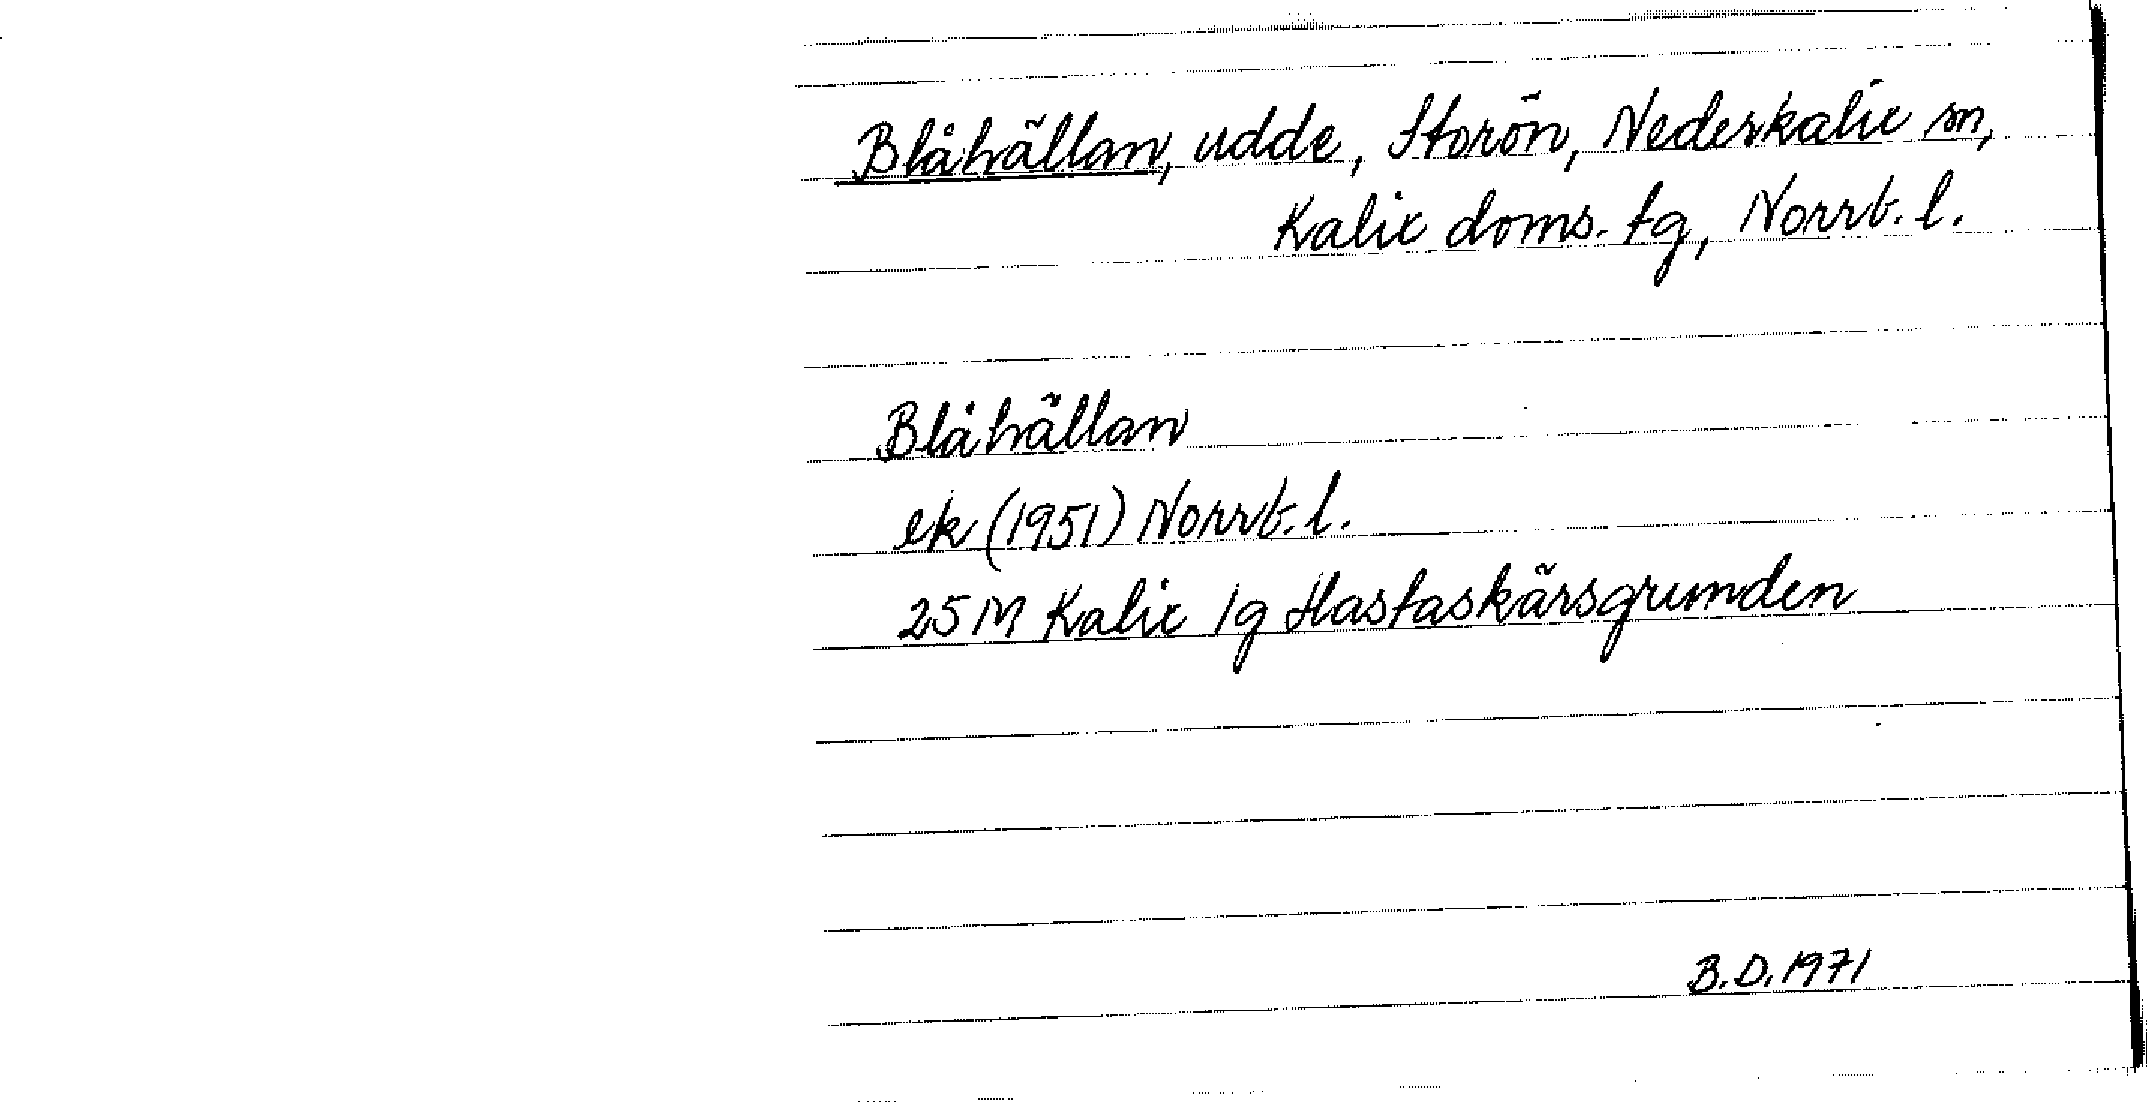 Blåhällan, udde, Storön, Nederkalix sn,
Kalix doms. tg, Norrb. l.
Blåhällan
ek (1951) Norrb. l.
25 M Kalix 1g Hastaskärsgrunden
B.D. 1971